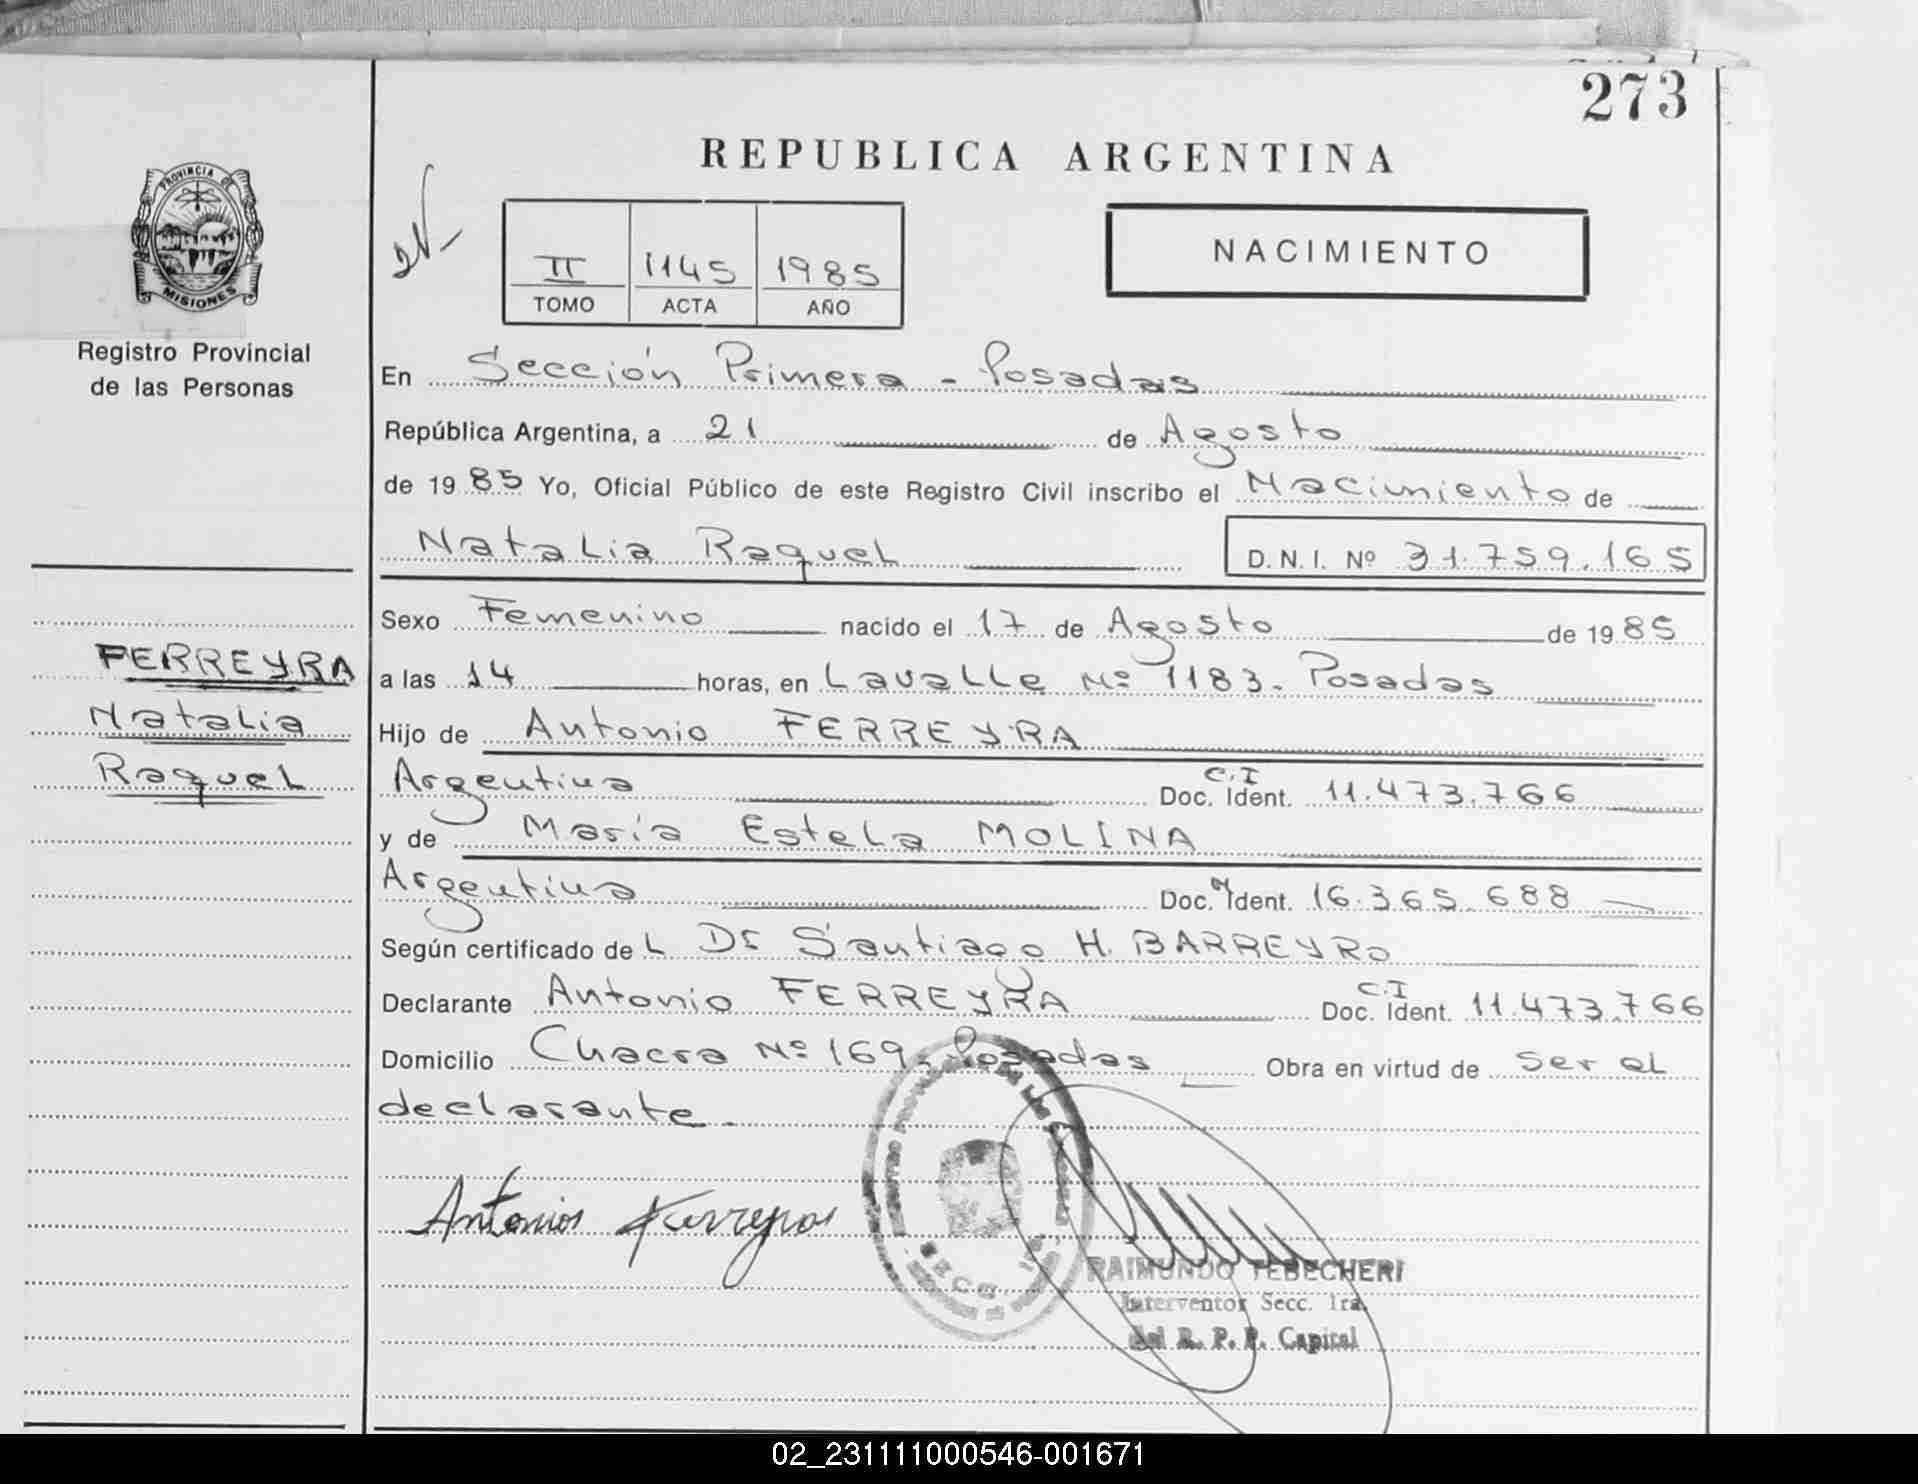 273
REPUBLICA ARGENTINA
PROVINCIA DE
MISIONES
Registro Provincial
de las Personas
II 1145 1985
TOMO ACTA AÑO
NACIMIENTO
En Sección Primera - Posadas
República Argentina, a 21 de Agosto
de 1985 Yo, Oficial Público de este Registro Civil inscribo el Nacimiento de
Natalia Raquel D.N.I. Nº 31.759.165
Sexo Femenino nacido el 17 de Agosto de 1985
FERREYRA
Natalia
Raquel
a las 14 horas, en Lavalle Nº 1183. Posadas
Hijo de Antonio FERREYRA
Argentina C.I Doc. Ident. 11.473.766
y de María Estela MOLINA
Argentina Doc. Ident. 16.365.688
Según certificado del Dr Santiago H. BARREYRO
Declarante Antonio FERREYRA C.I Doc. Ident. 11.473.766
Domicilio Chacra Nº 169. Posadas Obra en virtud de ser el
declarante.
Antonio
RAIMUNDO TEBECHERI
Interventor Secc. 1ra.
del R. P. P. Capital
02_231111000546-001671